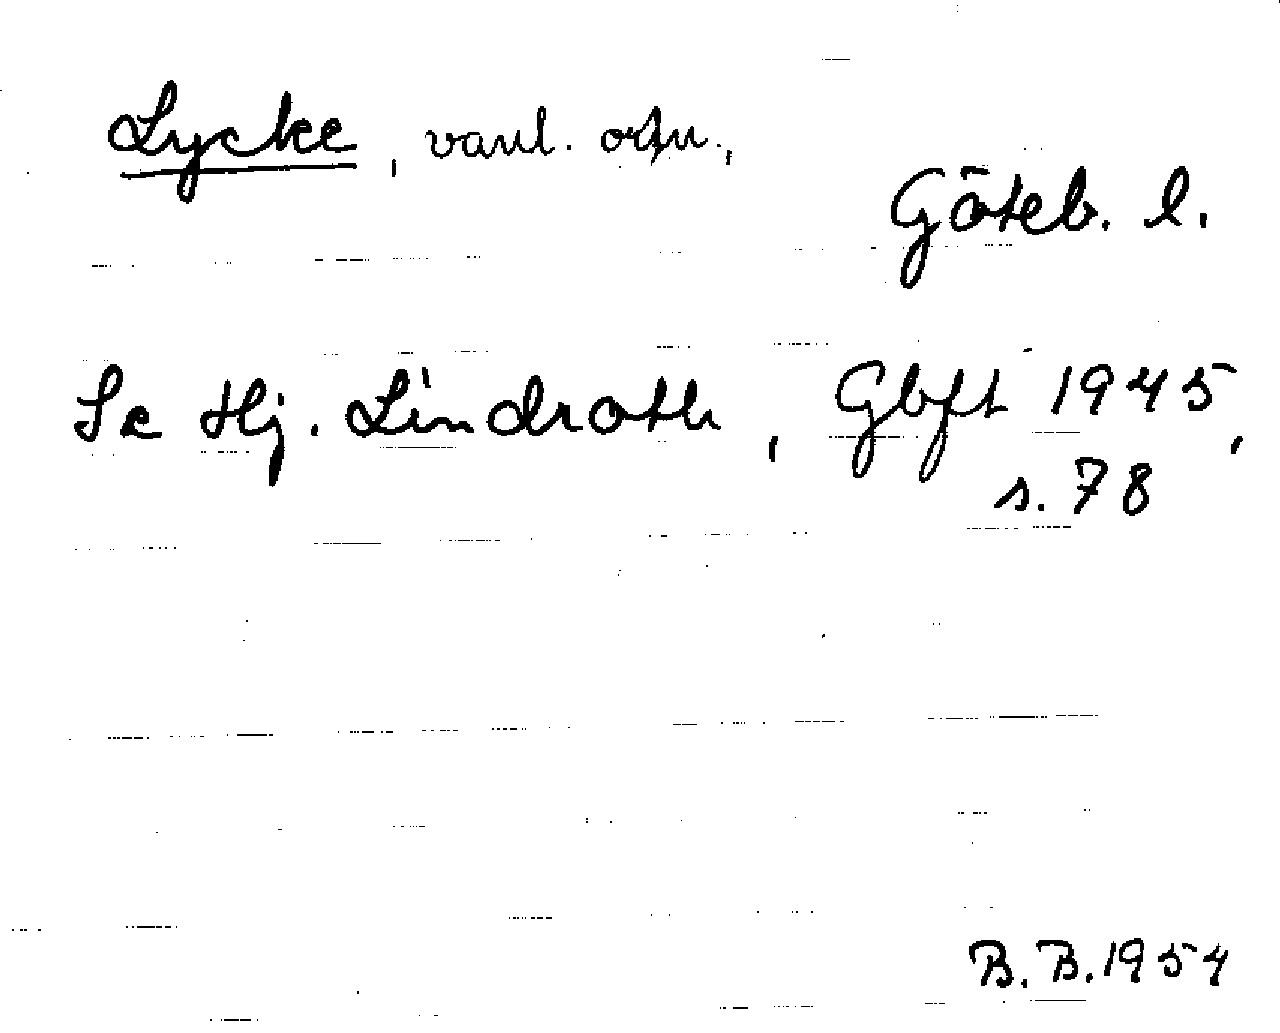 Lycke, vanl. ortn.,
Göteb. l.
Se Hj. Lindroth, Gbft 1945,
s. 78
B. B. 1954